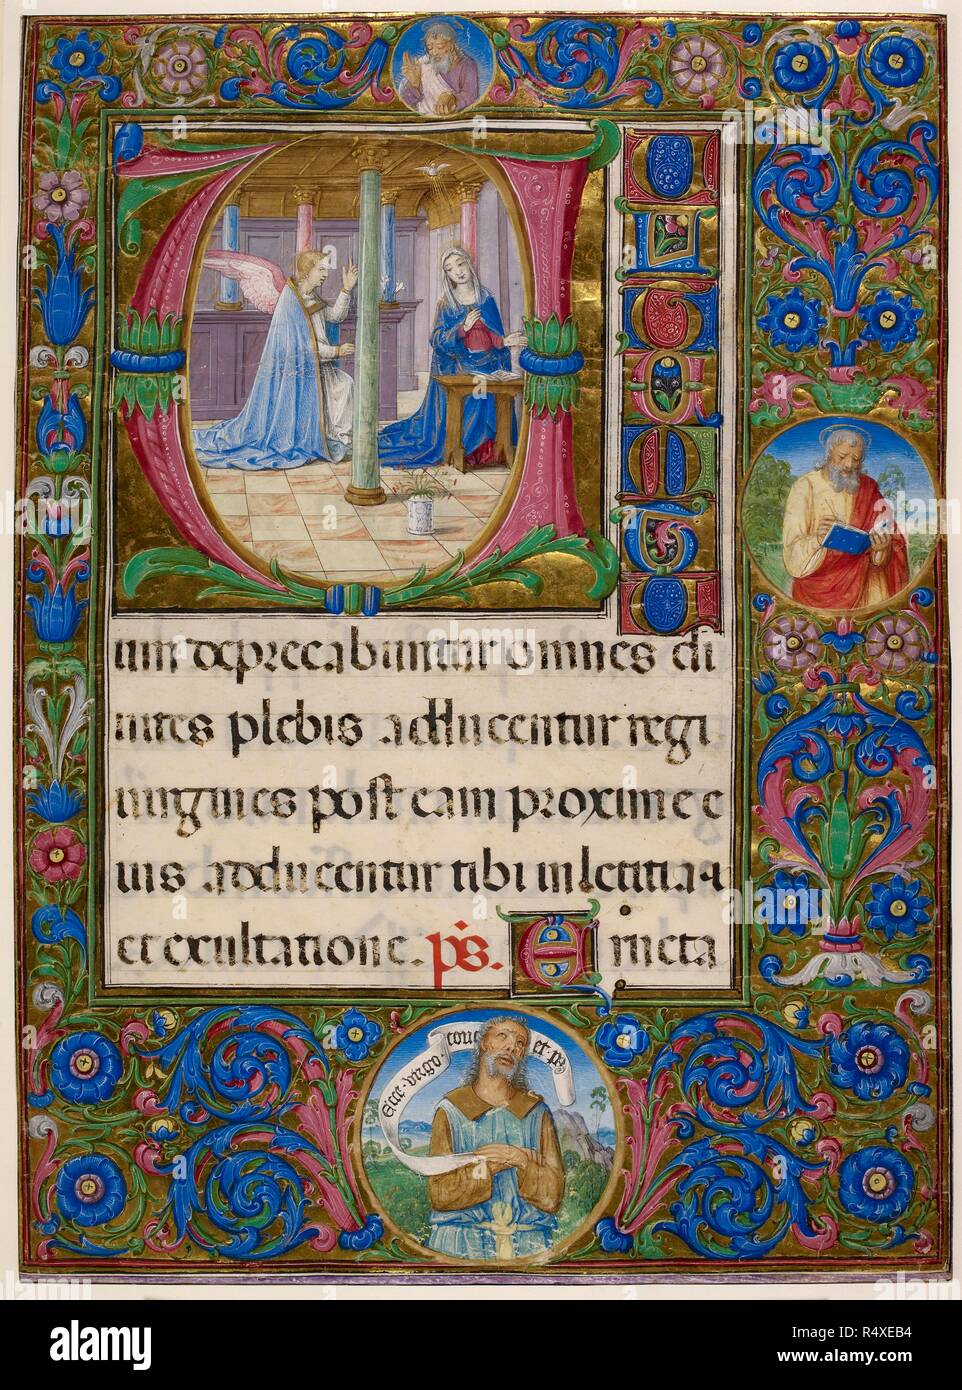 V
U
L
T
U
M
T
U
um deprecabuntur omnes di
uites plebis adducentur regi
uirgines post eam proxime e
ius adducentur tibi in letitia
et exultatione. ps. Eructa
Ecce. virgo. conc et. pa
a alamy stock photo
alamy
Image ID: R4XEB4
www.alamy.com